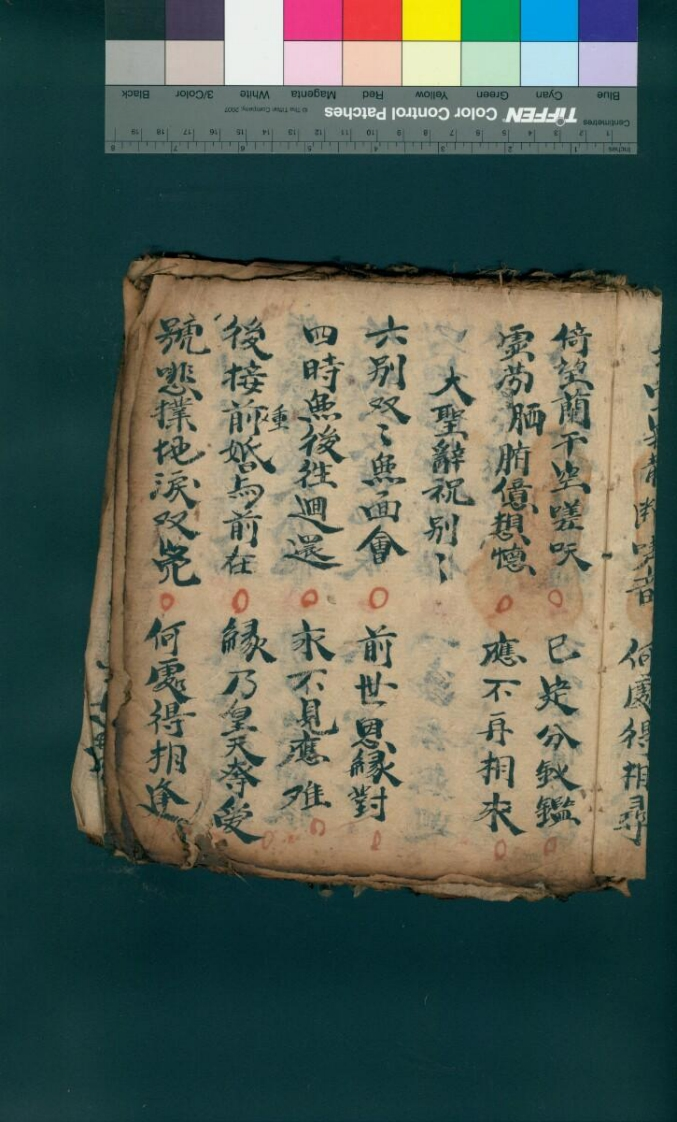 何處得相尋
倚望蘭干空嗟呎 已定分釵鑑
雲芳腼腑億想憶 應不再相求
大聖辭祝別〻
六别双〻無面會 前世恩縁對
四時無後徃廻還 求不見應难
後接前婚与前在 縁乃皇天奪愛
號悲撲地淚双 何處得相逢
Inches
Centimetres
TIFFEN Color Control Patches
© The Tiffen Company, 2007
Blue Cyan Green Yellow Red Magenta White 3/Color Black